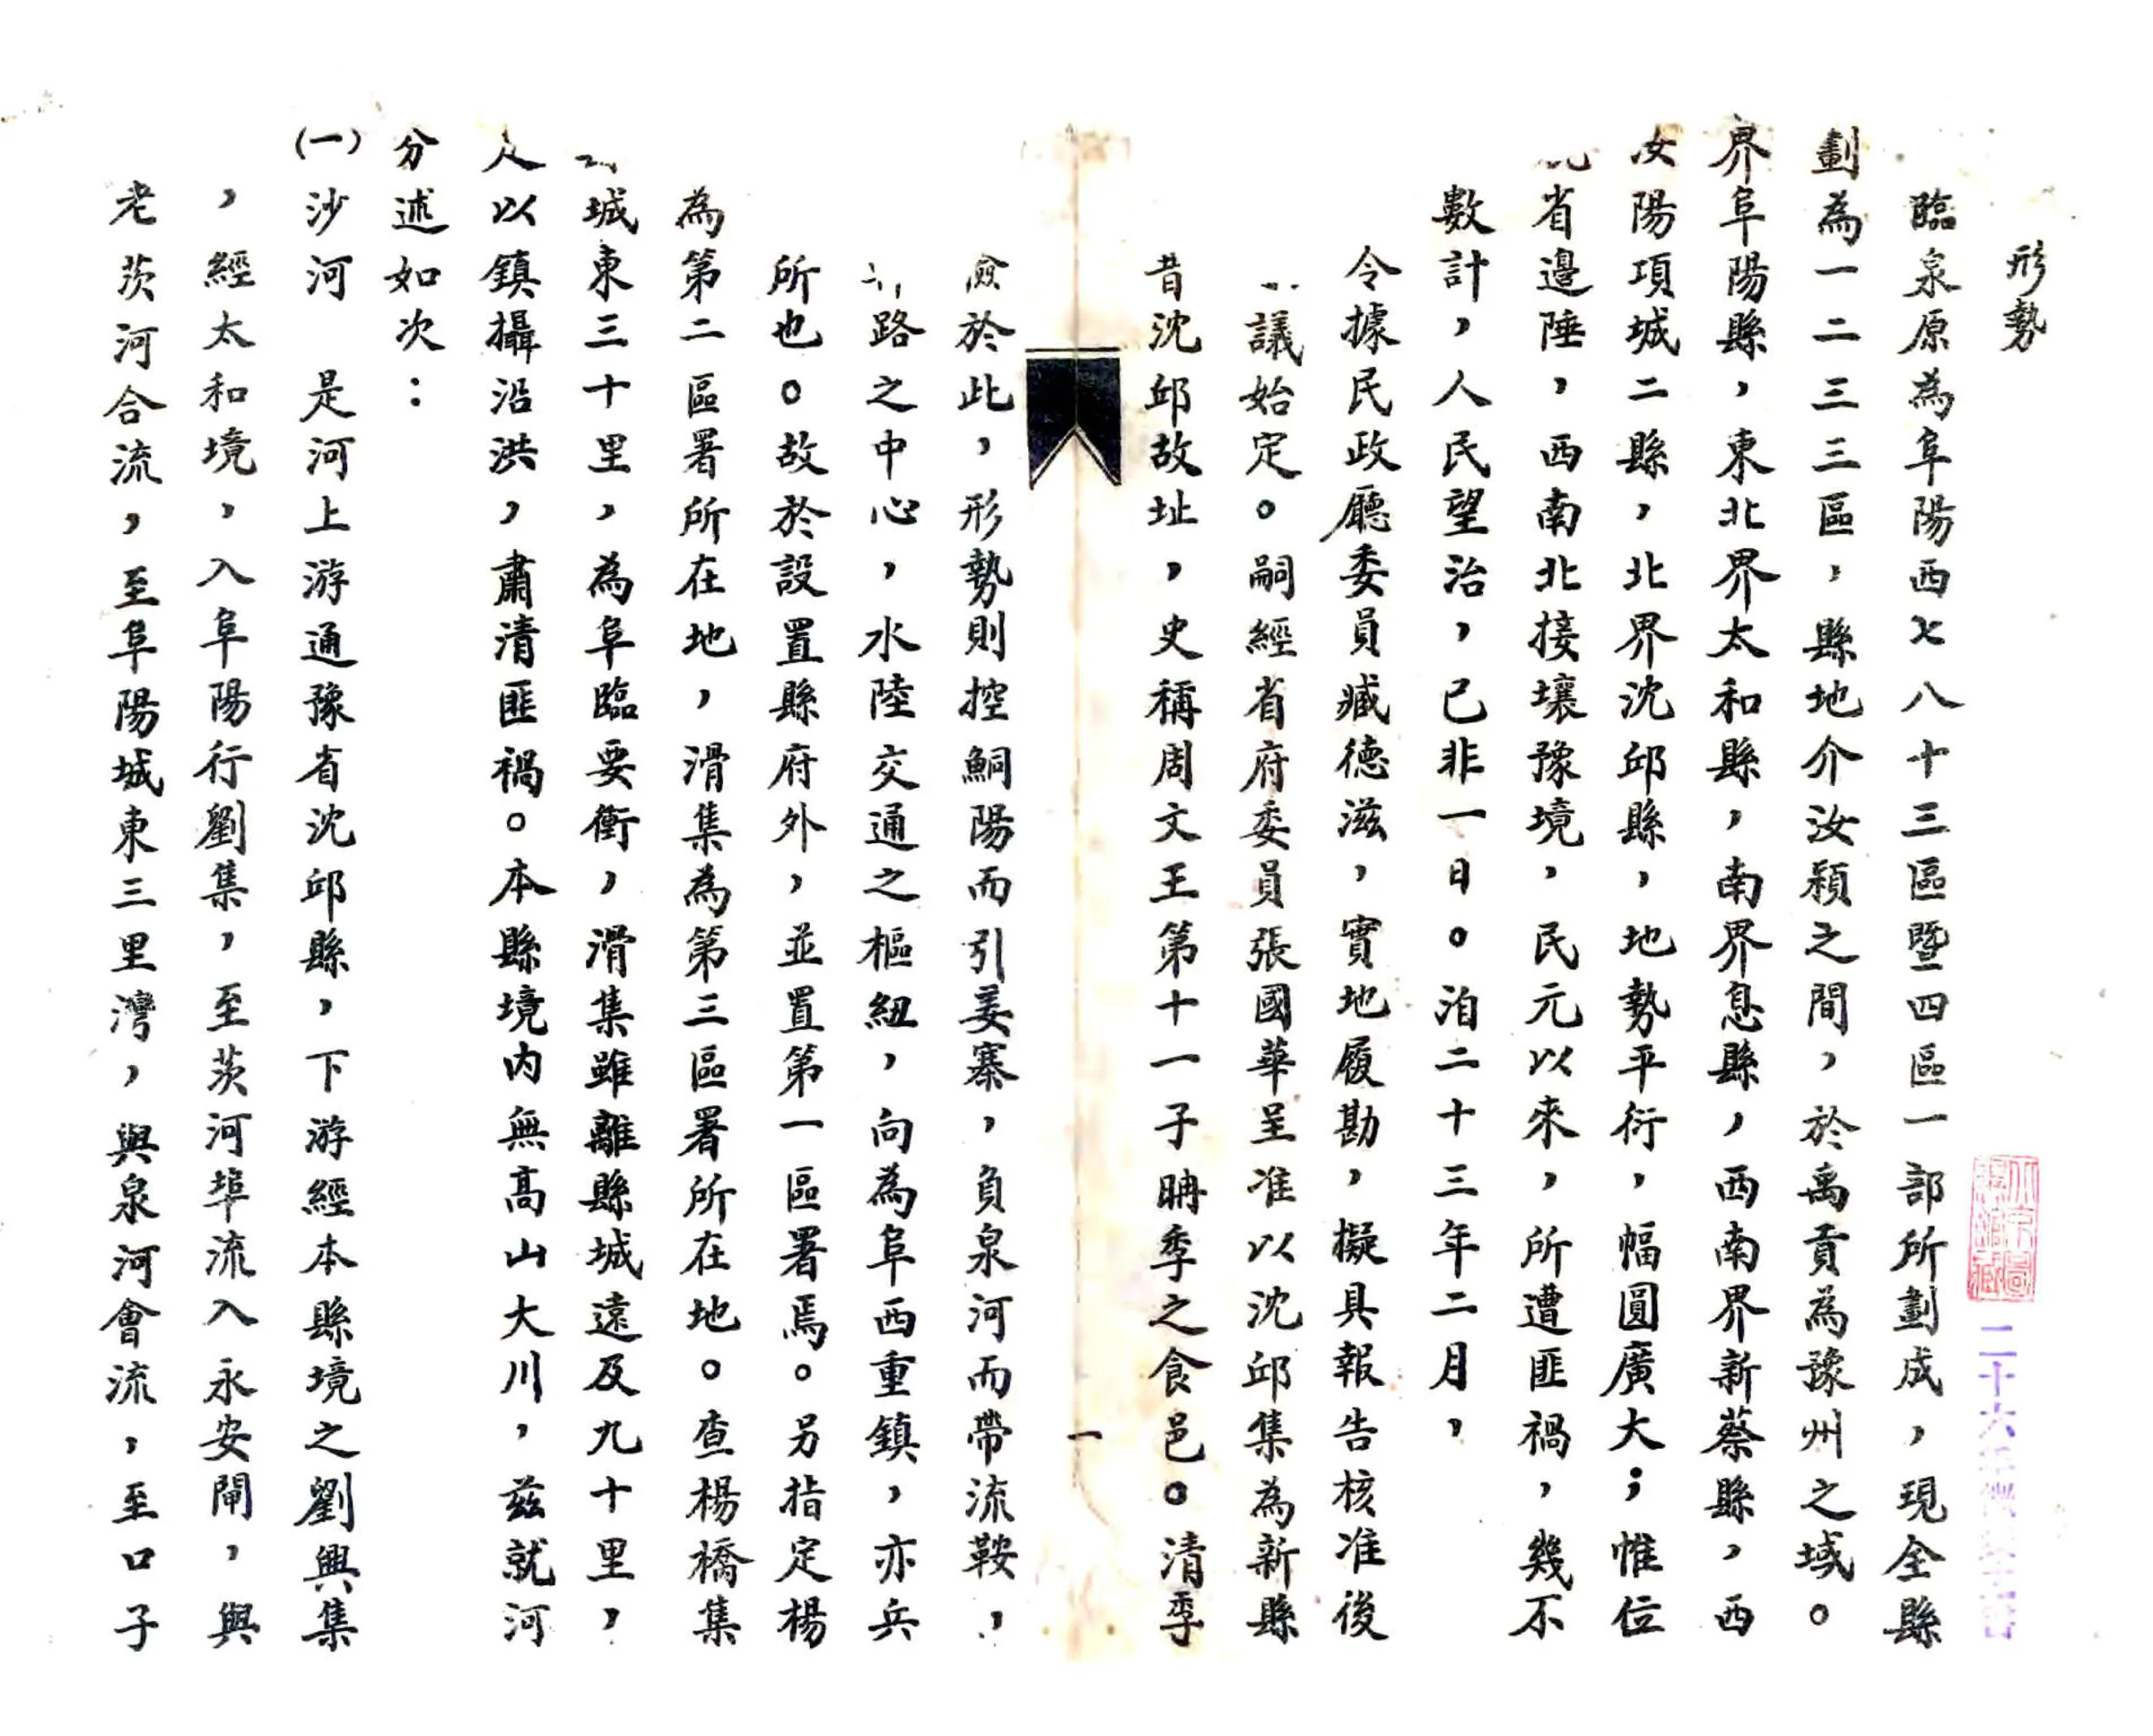 形勢
臨泉原為阜陽西七八十三區暨四區一部所劃成，現全縣
劃為一二三三區，縣地介汝潁之間，於禹貢為豫州之域。
界阜陽縣，東北界太和縣，南界息縣，西南界新蔡縣，西
汝陽項城二縣，北界沈邱縣，地勢平衍，幅圓廣大；惟位
省邊陲，西南北接壤豫境，民元以來，所遭匪禍，幾不
數計，人民望治，已非一日。洎二十三年二月，
令據民政廳委員臧德滋，實地履勘，擬具報告核准後
議始定。嗣經省府委員張國華呈准以沈邱集為新縣
昔沈邱故址，史稱周文王第十一子聃季之食邑。清季
一
於此，形勢則控鮦陽而引姜寨，負泉河而帶流鞍，
路之中心，水陸交通之樞紐，向為阜西重鎮，亦兵
所也。故於設置縣府外，並置第一區署焉。另指定楊
為第二區署所在地，滑集為第三區署所在地。查楊橋集
城東三十里，為阜臨要衝，滑集雖離縣城遠及九十里，
以鎮攝沿洪，肅清匪禍。本縣境內無高山大川，茲就河
分述如次：
(一)沙河　是河上游通豫省沈邱縣，下游經本縣境之劉興集
，經太和境，入阜陽行劉集，至茨河埠流入永安閘，與
老茨河合流，至阜陽城東三里灣，與泉河會流，至口子